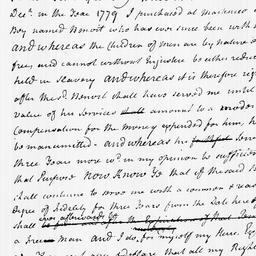 Decr. in the Year 1779 I purchased at Martinico a
Boy named Benoit who has ever since been with
and whereas the Children of Men are by Nature
free and cannot without Injustice be either reduced
held in Slavery and whereas it is therefore right
after the sd. Benoit shall have served me until
Value of his Services shall amount to a moderate
Compensation for the money expended for him, he
be manumitted - and whereas his faithful
three Years more wd. in my opinion be sufficient
that Purpose now Know Ye that if the said
shall continue to serve me with a common & reas
Degree of Fidelity for three Years from the Date hereof
shall ever afterwards be
a free man and I do for myself my Heirs Exec
declare that all my Right